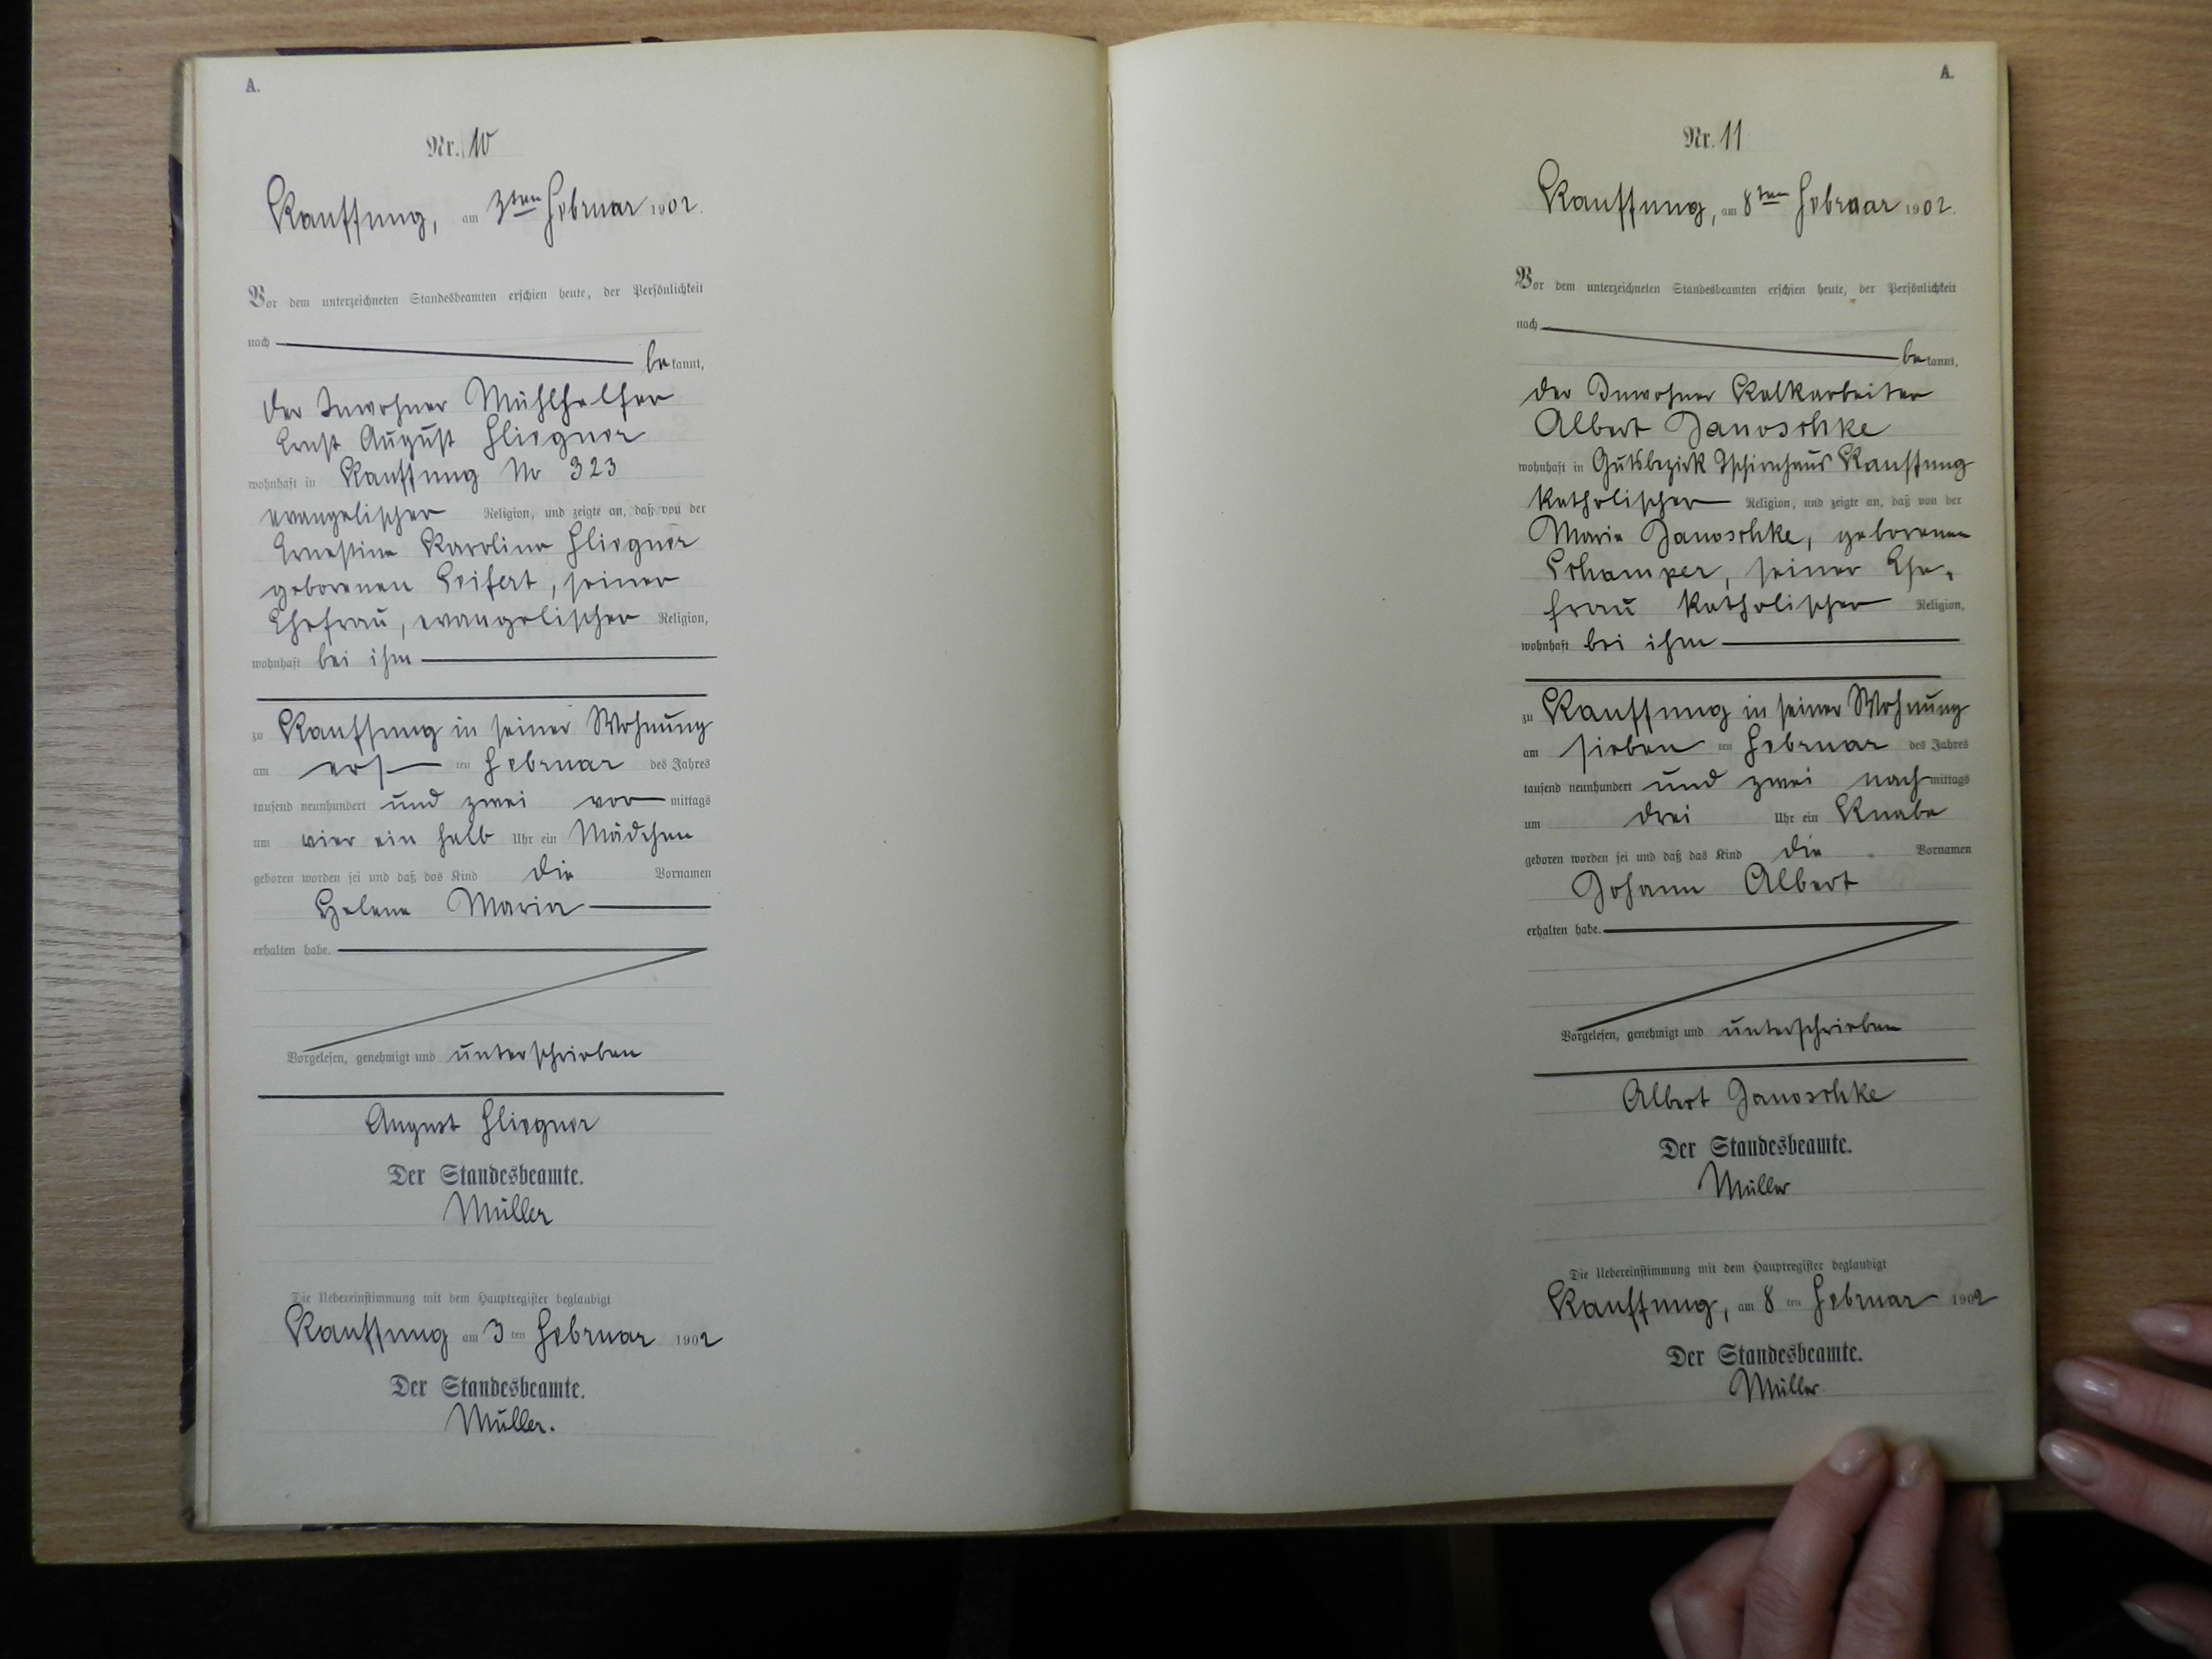 A.
Nr. 10
Kauffung, am 3ten Februar 1902.
Vor dem unterzeichneten Standesbeamten erschien heute, der Persönlichkeit
nach
bekannt,
der Inwohner Mühlhelfer
Ernst August Fliegner
wohnhaft in Kauffung No 323
evangelischer Religion, und zeigte an, daß von der
Ernestine Karoline Fliegner
geborenen Seifert, seiner
Ehefrau, evangelischer Religion,
wohnhaft bei ihm
zu Kauffung in seiner Wohnung
am ersten Februar des Jahres
tausend neunhundert und zwei vormittags
um vier ein halb Uhr ein Mädchen
geboren worden sei und daß das Kind die Vornamen
Helene Maria
erhalten habe.
Vorgelesen, genehmigt und unterschrieben
August Fliegner
Der Standesbeamte.
Müller
Die Uebereinstimmung mit dem Hauptregister beglaubigt
Kauffung am 3 ten Februar 1902
Der Standesbeamte.
Müller.
A.
Nr. 11
Kauffung, am 8ten Februar 1902.
Vor dem unterzeichneten Standesbeamten erschien heute, der Persönlichkeit
nach
bekannt,
der Inwohner Kalkarbeiter
Albert Janoschke
wohnhaft in Gutsbezirk Tschirnhaus Kauffung
katholischer Religion, und zeigte an, daß von der
Marie Janoschke, geborenen
Schamper, seiner Ehe-
frau katholischer Religion,
wohnhaft bei ihm
zu Kauffung in seiner Wohnung
am siebenten Februar des Jahres
tausend neunhundert und zwei nachmittags
um drei Uhr ein Knabe
geboren worden sei und daß das Kind die Vornamen
Johann Albert
erhalten habe.
Vorgelesen, genehmigt und unterschrieben
Albert Janoschke
Der Standesbeamte.
Müller
Die Uebereinstimmung mit dem Hauptregister beglaubigt
Kauffung, am 8 ten Februar 1902
Der Standesbeamte.
Müller